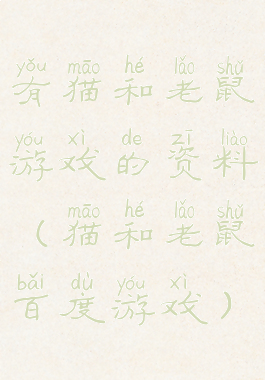 yǒu māo hé lǎo shǔ
有猫和老鼠
yóu xì de zī liào
游戏的资料
māo hé lǎo shǔ
(猫和老鼠
bǎi dù yóu xì
百度游戏)